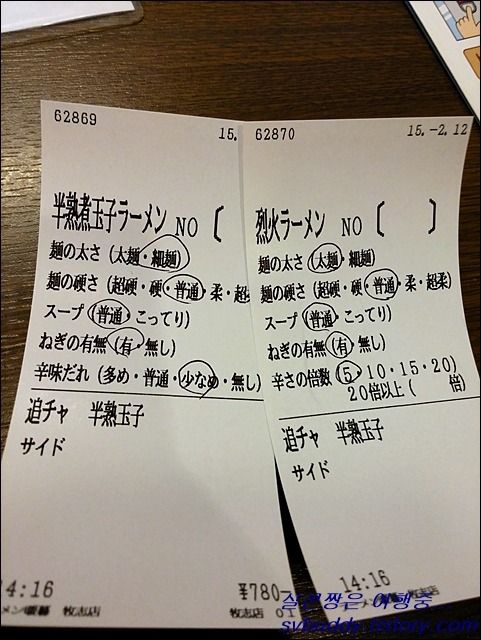 62869
15.
半熟煮玉子ラーメン NO〔
麺の太さ(太麺・細麺)
麺の硬さ(超硬・硬・普通・柔・超
スープ(普通・こってり)
ねぎの有無(有・無し)
辛味だれ(多め・普通・少なめ・無し)
追チャ 半熟玉子
サイド
14:16
¥780
牧志店 01
牧志店
62870
15.-2.12
烈火ラーメン NO〔 〕
麺の太さ(太麺・細麺)
麺の硬さ(超硬・硬・普通・柔・超柔)
スープ(普通・こってり)
ねぎの有無(有・無し)
辛さの倍数(5・10・15・20)
20倍以上( 倍)
追チャ 半熟玉子
サイド
14:16
牧志店